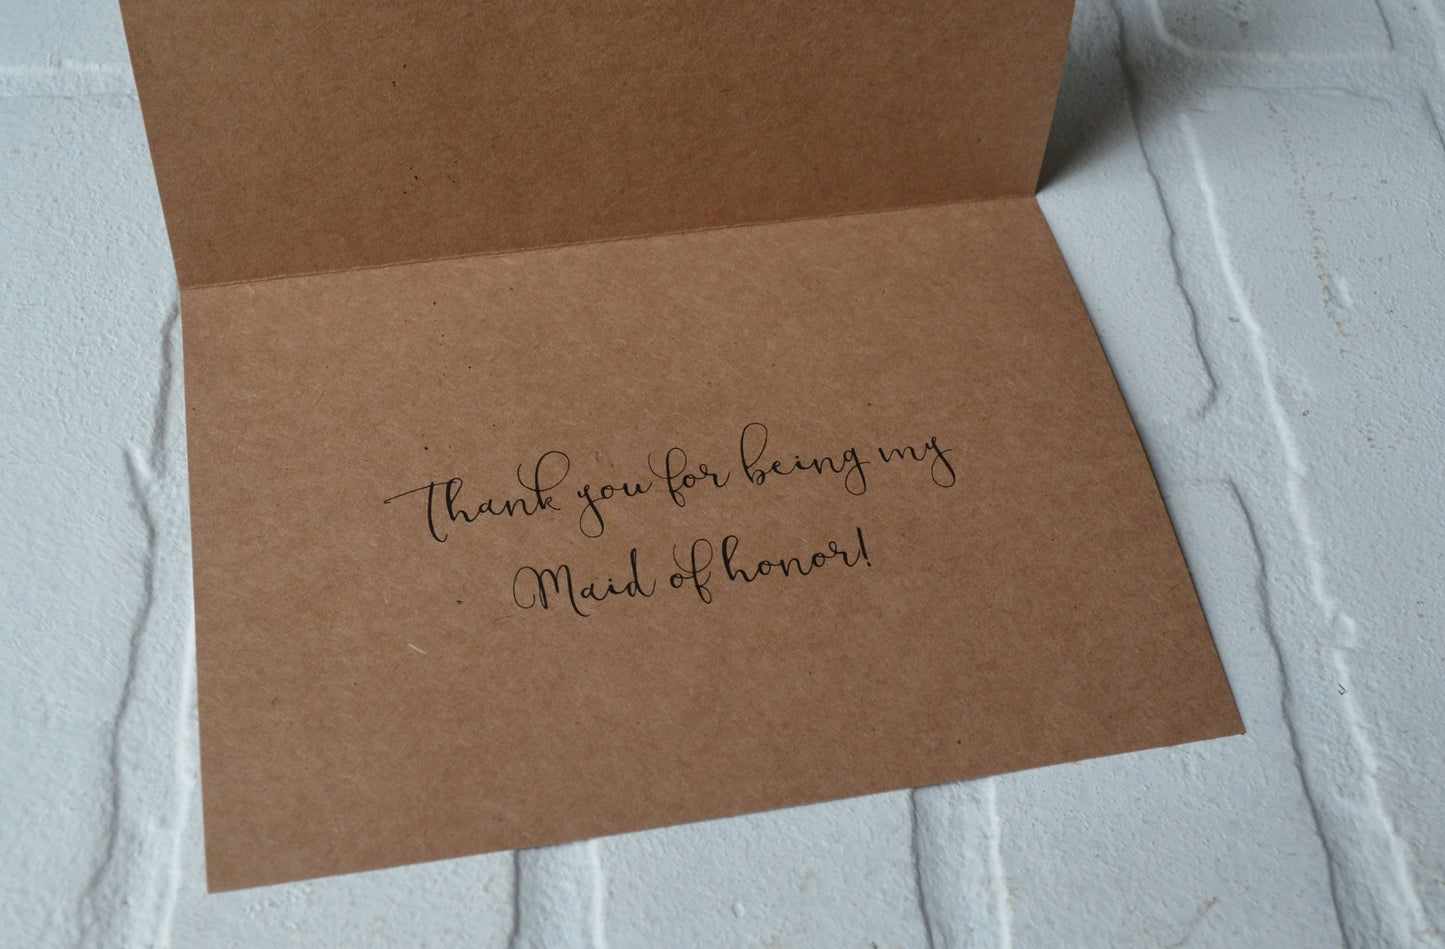 Thank you for being my
Maid of honor!